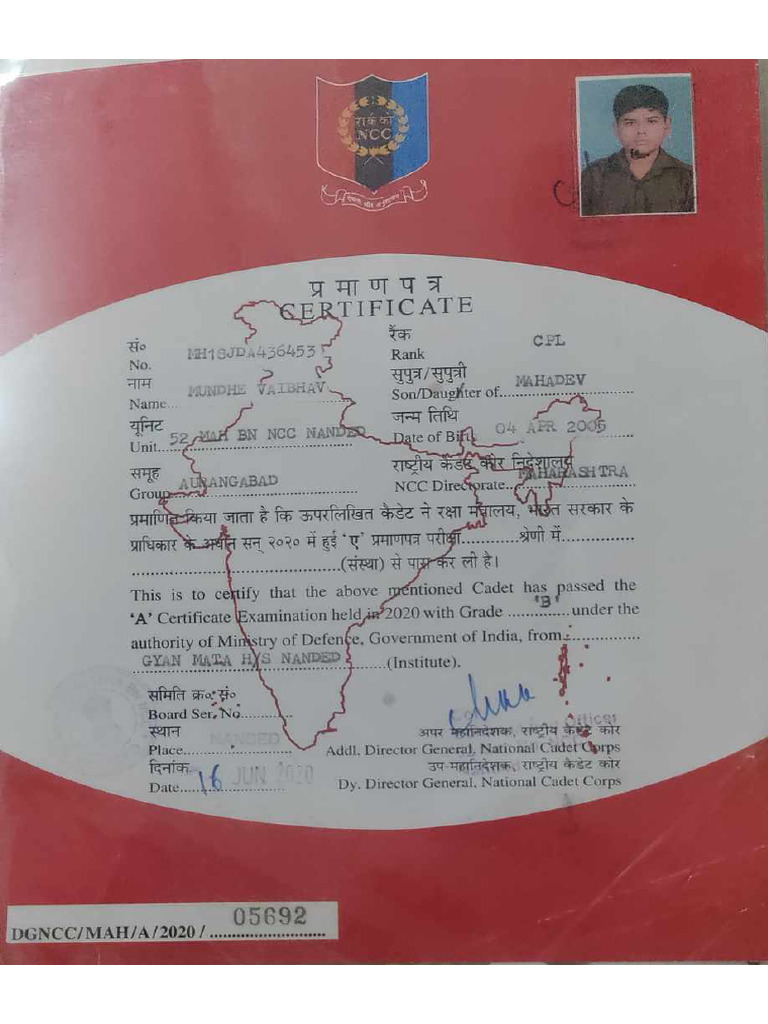 रा.कै.को
NCC
एकता और अनुशासन
प्रमाणपत्र
CERTIFICATE
सं०
No. MH18JDA436453
रैंक
Rank CPL
नाम
Name... MUNDHE VAIBHAV
सुपुत्र/सुपुत्री
Son/Daughter of MAHADEV
यूनिट
Unit 52 MAH BN NCC NANDED
जन्म तिथि
Date of Birth 04 APR 2005
समूह
Group AURANGABAD
राष्ट्रीय कैडेट कोर निदेशालय
NCC Directorate.. MAHARASHTRA
प्रमाणित किया जाता है कि ऊपरलिखित कैडेट ने रक्षा मंत्रालय, भारत सरकार के
प्राधिकार के अधीन सन् २०२० में हुई 'ए' प्रमाणपत्र परीक्षा............श्रेणी में...............
............................................(संस्था) से पास कर ली है।
This is to certify that the above mentioned Cadet has passed the
'A' Certificate Examination held in 2020 with Grade ... 'B' ... under the
authority of Ministry of Defence, Government of India, from................
GYAN MATA H/S NANDED ................(Institute).
समिति क्र० सं०
Board Ser. No............
स्थान
Place..... NANDED
दिनांक
Date.... 16 JUN 2020
Officer
अपर महानिदेशक, राष्ट्रीय कैडेट कोर
Addl. Director General, National Cadet Corps
उप-महानिदेशक, राष्ट्रीय कैडेट कोर
Dy. Director General, National Cadet Corps
DGNCC/MAH/A/2020 / 05692